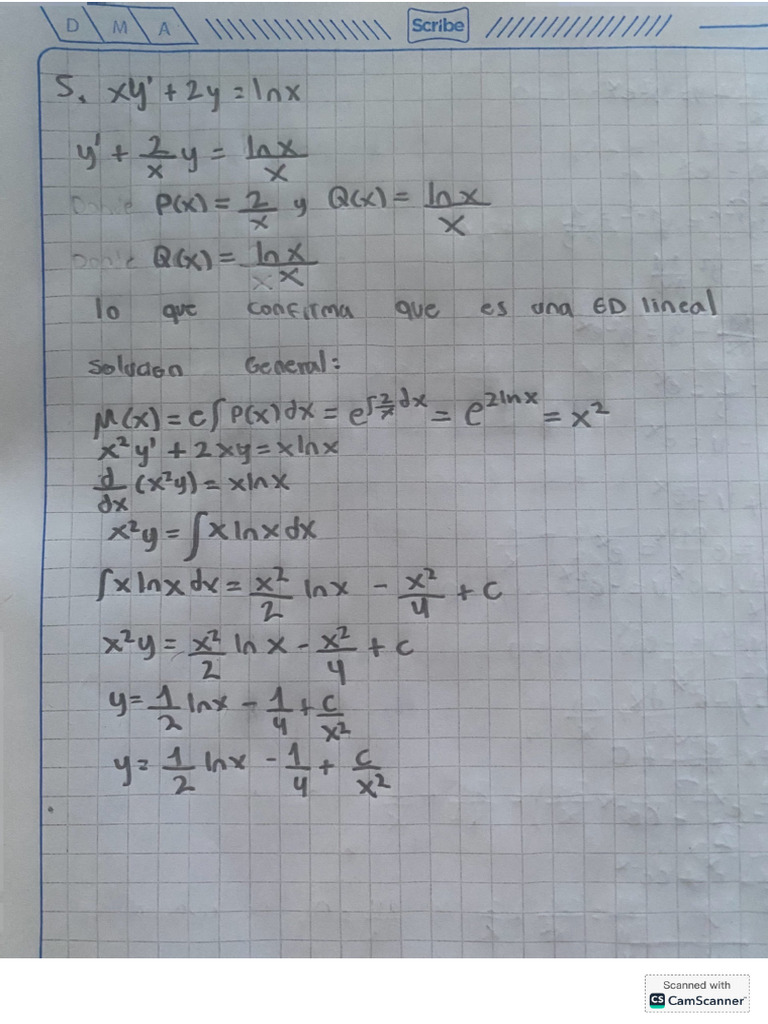 D M A Scribe
5. xy' + 2y = lnx
y' + 2/x y = lnx/x
P(x) = 2/x y Q(x) = lnx/x
Q(x) = lnx/x
lo que confirma que es una ED lineal
Solucion General:
M(x) = e∫P(x)dx = e^∫2/x dx = e^2lnx = x²
x²y' + 2xy = xlnx
d/dx (x²y) = xlnx
x²y = ∫x lnx dx
∫x lnx dx = x²/2 lnx - x²/4 + c
x²y = x²/2 ln x - x²/4 + c
y = 1/2 lnx - 1/4 + c/x²
y = 1/2 lnx - 1/4 + c/x²
Scanned with
CS CamScanner